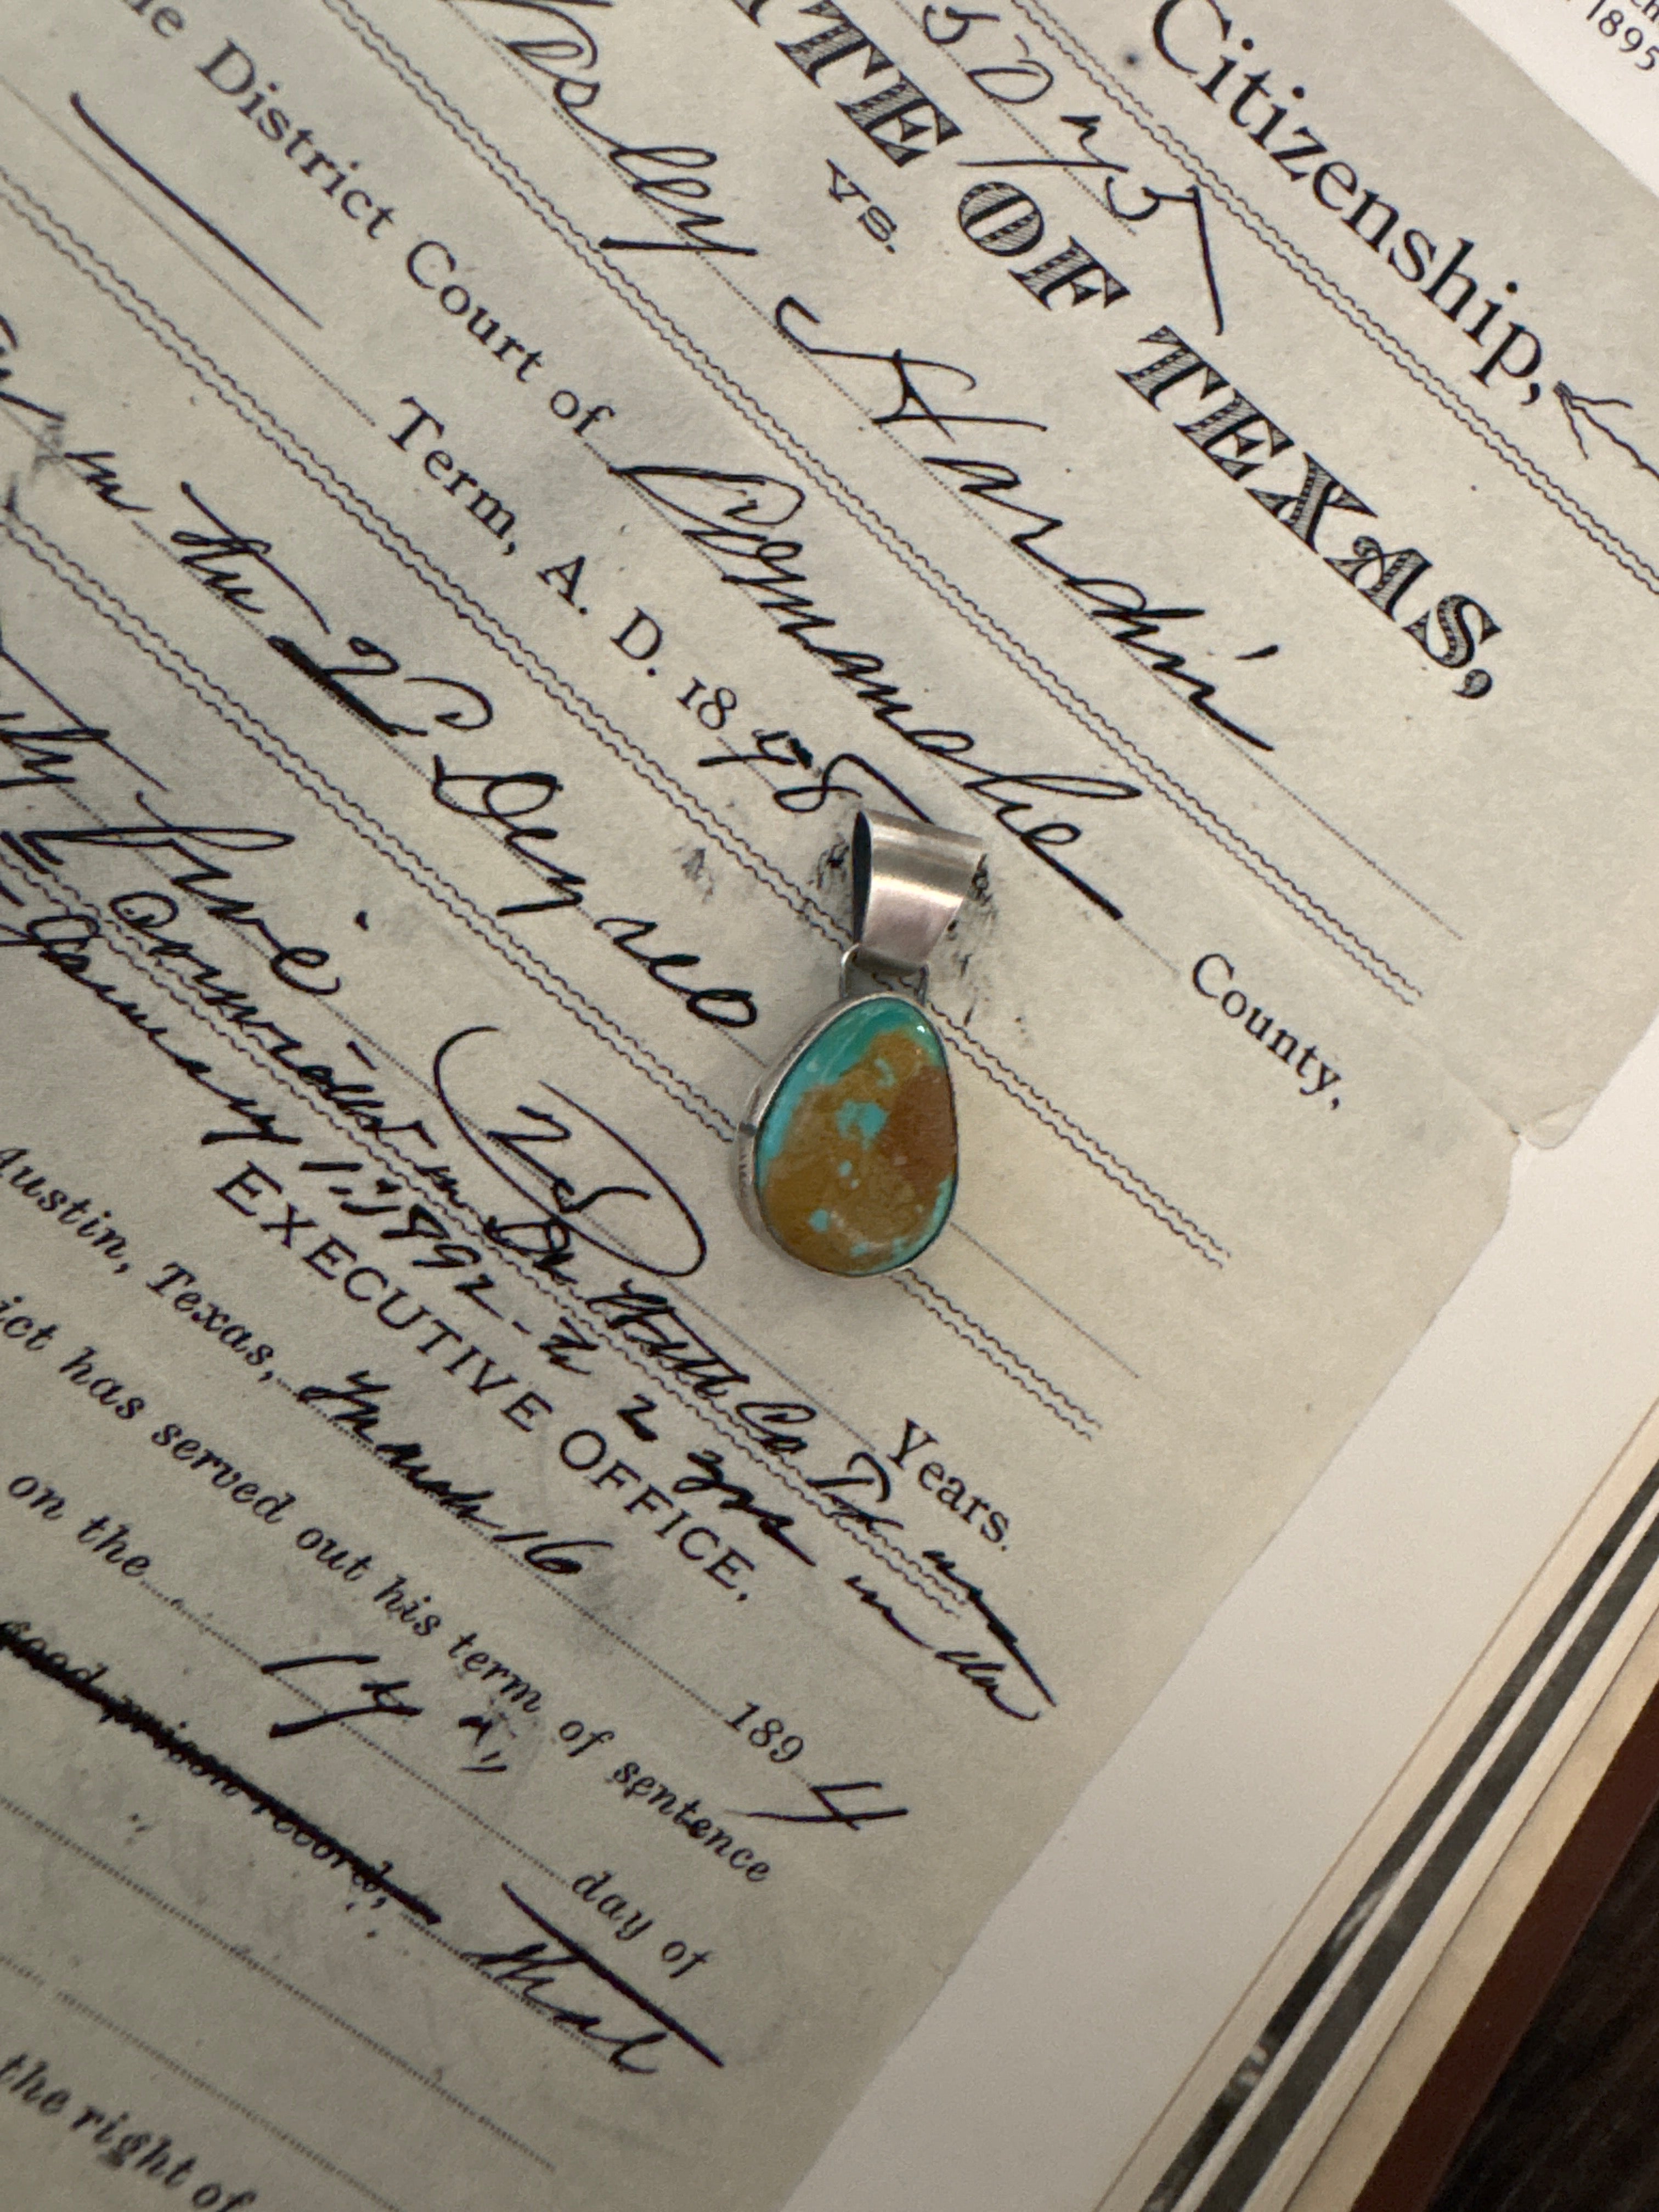 1895
Citizenship,
TE OF TEXAS,
vs.
Wesley Hardin
District Court of Comanche County,
Term, A. D. 1878
in the 2 Degree
five
25 Years.
convicted in De Witt Co
January 1, 1892 - 2 yrs
EXECUTIVE OFFICE.
Austin, Texas, March 16 1894
ict has served out his term of sentence
on the day of
good prison record, that
the right of